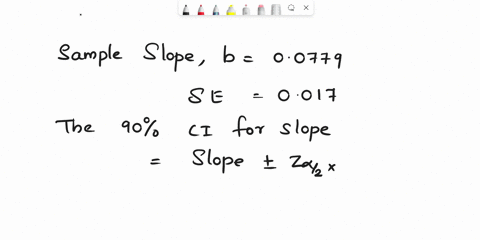 Sample Slope, b = 0.0779
SE = 0.017
The 90% CI for slope
= Slope ± Zα/2 ×